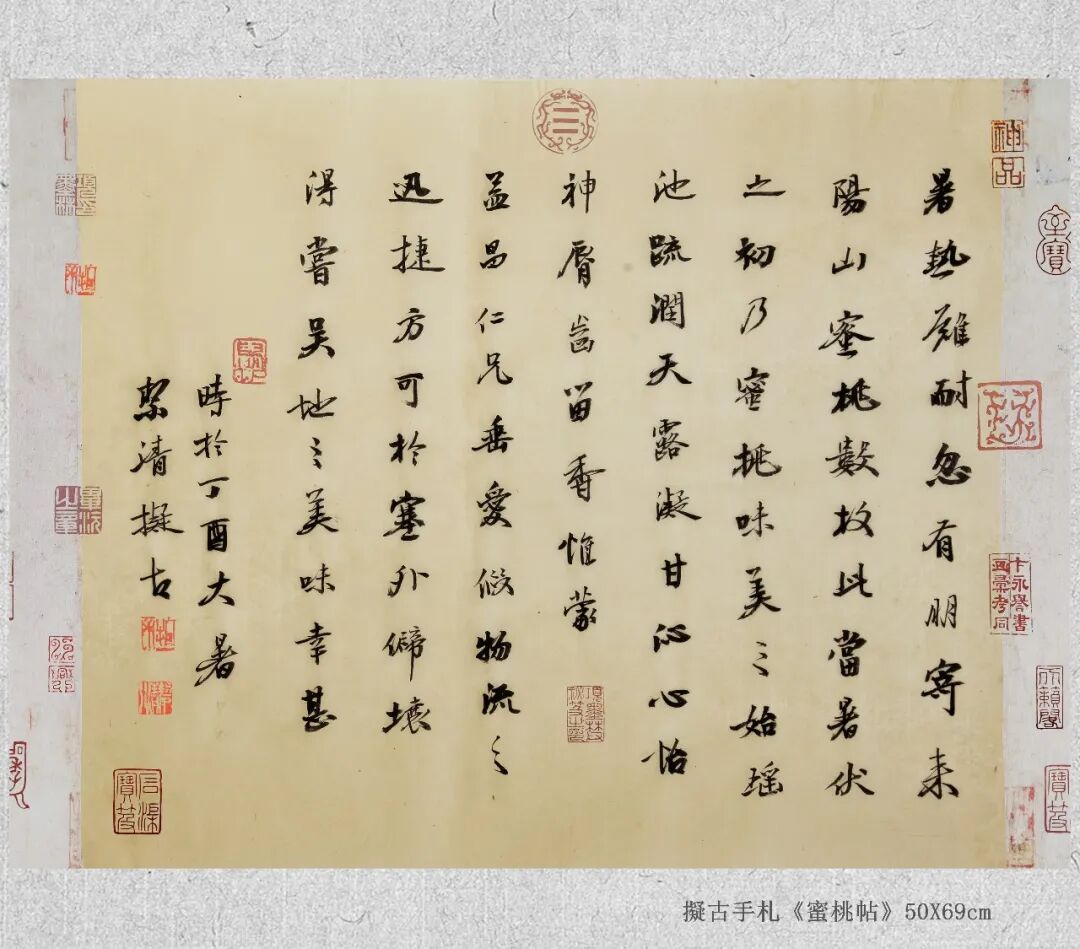 暑熱難耐忽有朋寄来
陽山蜜桃數枚此當暑伏
之初乃蜜桃味美之始瑶
池疏潤天露凝甘沁心怡
神脣齒留香惟蒙
益昌仁兄垂愛物流之
迅捷方可於塞外僻壤
得嘗吴地之美味幸甚
時於丁酉大暑
絜清擬古
神品
擬古手札《蜜桃帖》50X69cm